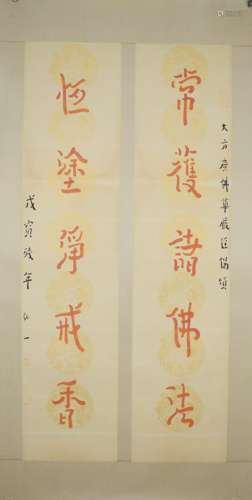 大方廣佛華嚴經偈頌
常獲諸佛法
恆塗淨戒香
戊寅殘年弘一